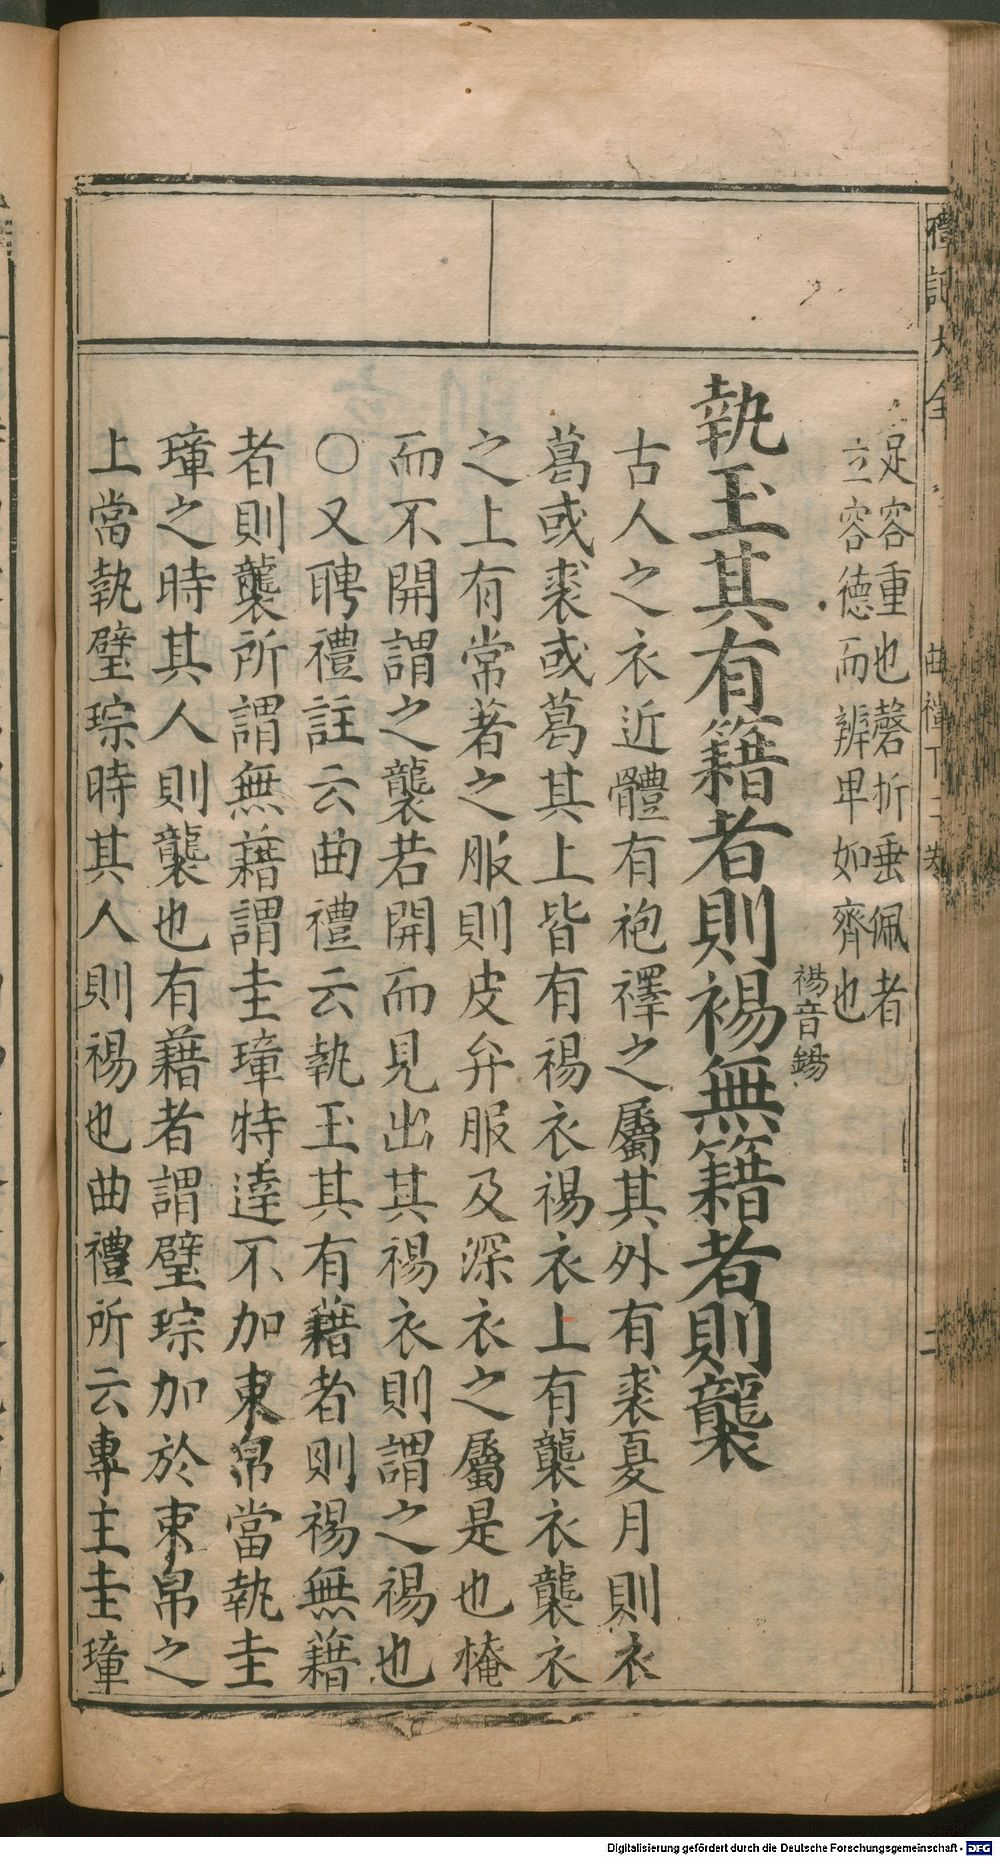 足容重也磬折垂佩者
立容德而辨卑如齊也
執玉其有籍者則裼無籍者則襲
裼音錫
古人之衣近體有袍襗之屬其外有裘夏月則衣
葛或裘或葛其上皆有裼衣裼衣上有襲衣襲衣
之上有常著之服則皮弁服及深衣之屬是也掩
而不開謂之襲若開而見出其裼衣則謂之裼也
〇又聘禮註云曲禮云執玉其有藉者則裼無藉
者則襲所謂無藉謂圭璋特達不加束帛當執圭
璋之時其人則襲也有藉者謂璧琮加於束帛之
上當執璧琮時其人則裼也曲禮所云專主圭璋
禮記大全
曲禮下二卷
二
Digitalisierung gefördert durch die Deutsche Forschungsgemeinschaft - DFG